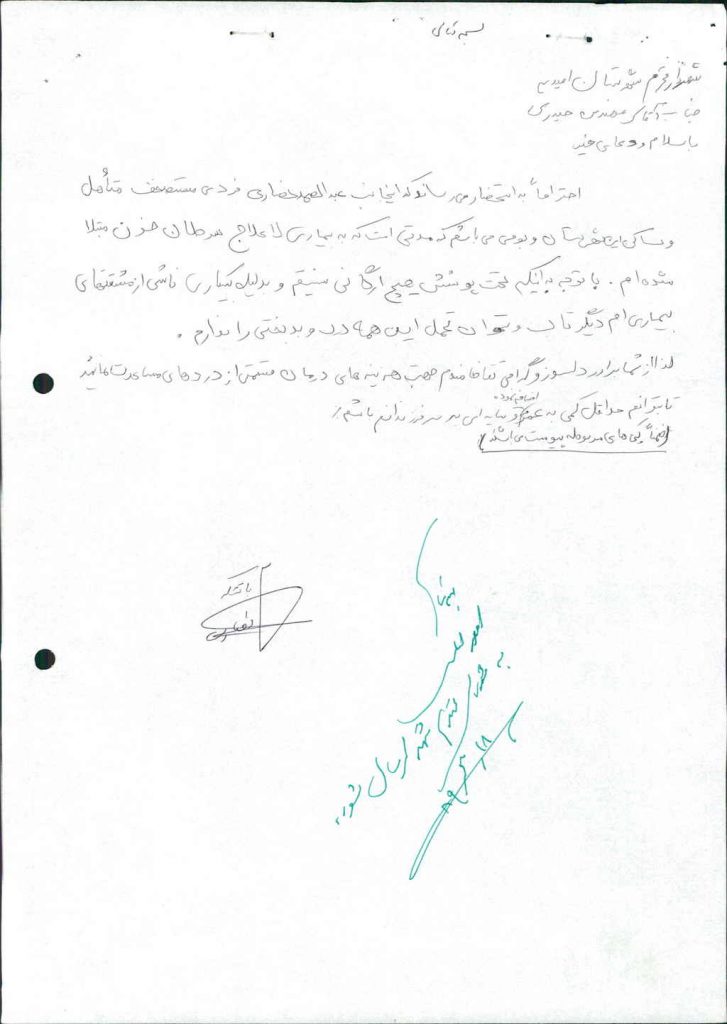 بسمه تعالی
شهردار محترم شهرستان امیدیه
جناب آقای مهندس حیدری
با سلام و دعای خیر
احتراماً به استحضار می رساند که اینجانب عبدالصمد خضاری فردی مستضعف متأهل
و ساکن این شهرستان و بومی می باشم که مدتی است که به بیماری لاعلاج سرطان خون مبتلا
شده ام . با توجه به اینکه تحت پوشش هیچ ارگانی نیستم و بدلیل بیکاری ناشی از مشقتهای
بیماری ام دیگر تاب و توان تحمل این همه درد و بدبختی را ندارم .
لذا از شما برادر دلسوز و گرامی تقاضامندم جهت هزینه های درمان قسمتی از دردهای مساعدت نمائید
تا بتوانم حداقل کمی به عمرم اضافه نموده و سایه ای بر سر فرزندانم باشم
(ضمناً کپی های مربوطه پیوست می باشد)
با تشکر
به
محترم شهر ارسال شود
۸۹